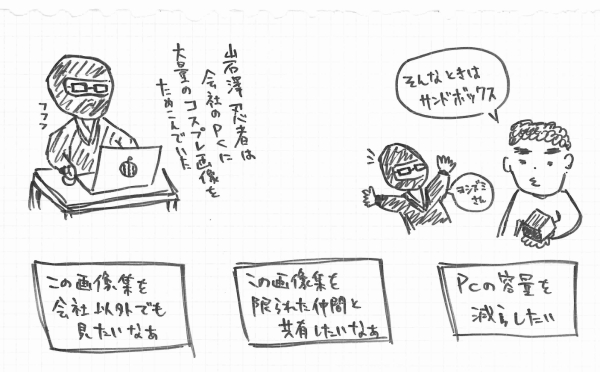 山石澤忍者は
会社のPCに
大量のコスプレ画像を
ためこんでいた
フフフ
そんなときは
サンドボックス
ヨシズミ
さん
この画像集を
会社以外でも
見たいなあ
この画像集を
限られた仲間と
共有したいなぁ
PCの容量を
減らしたい